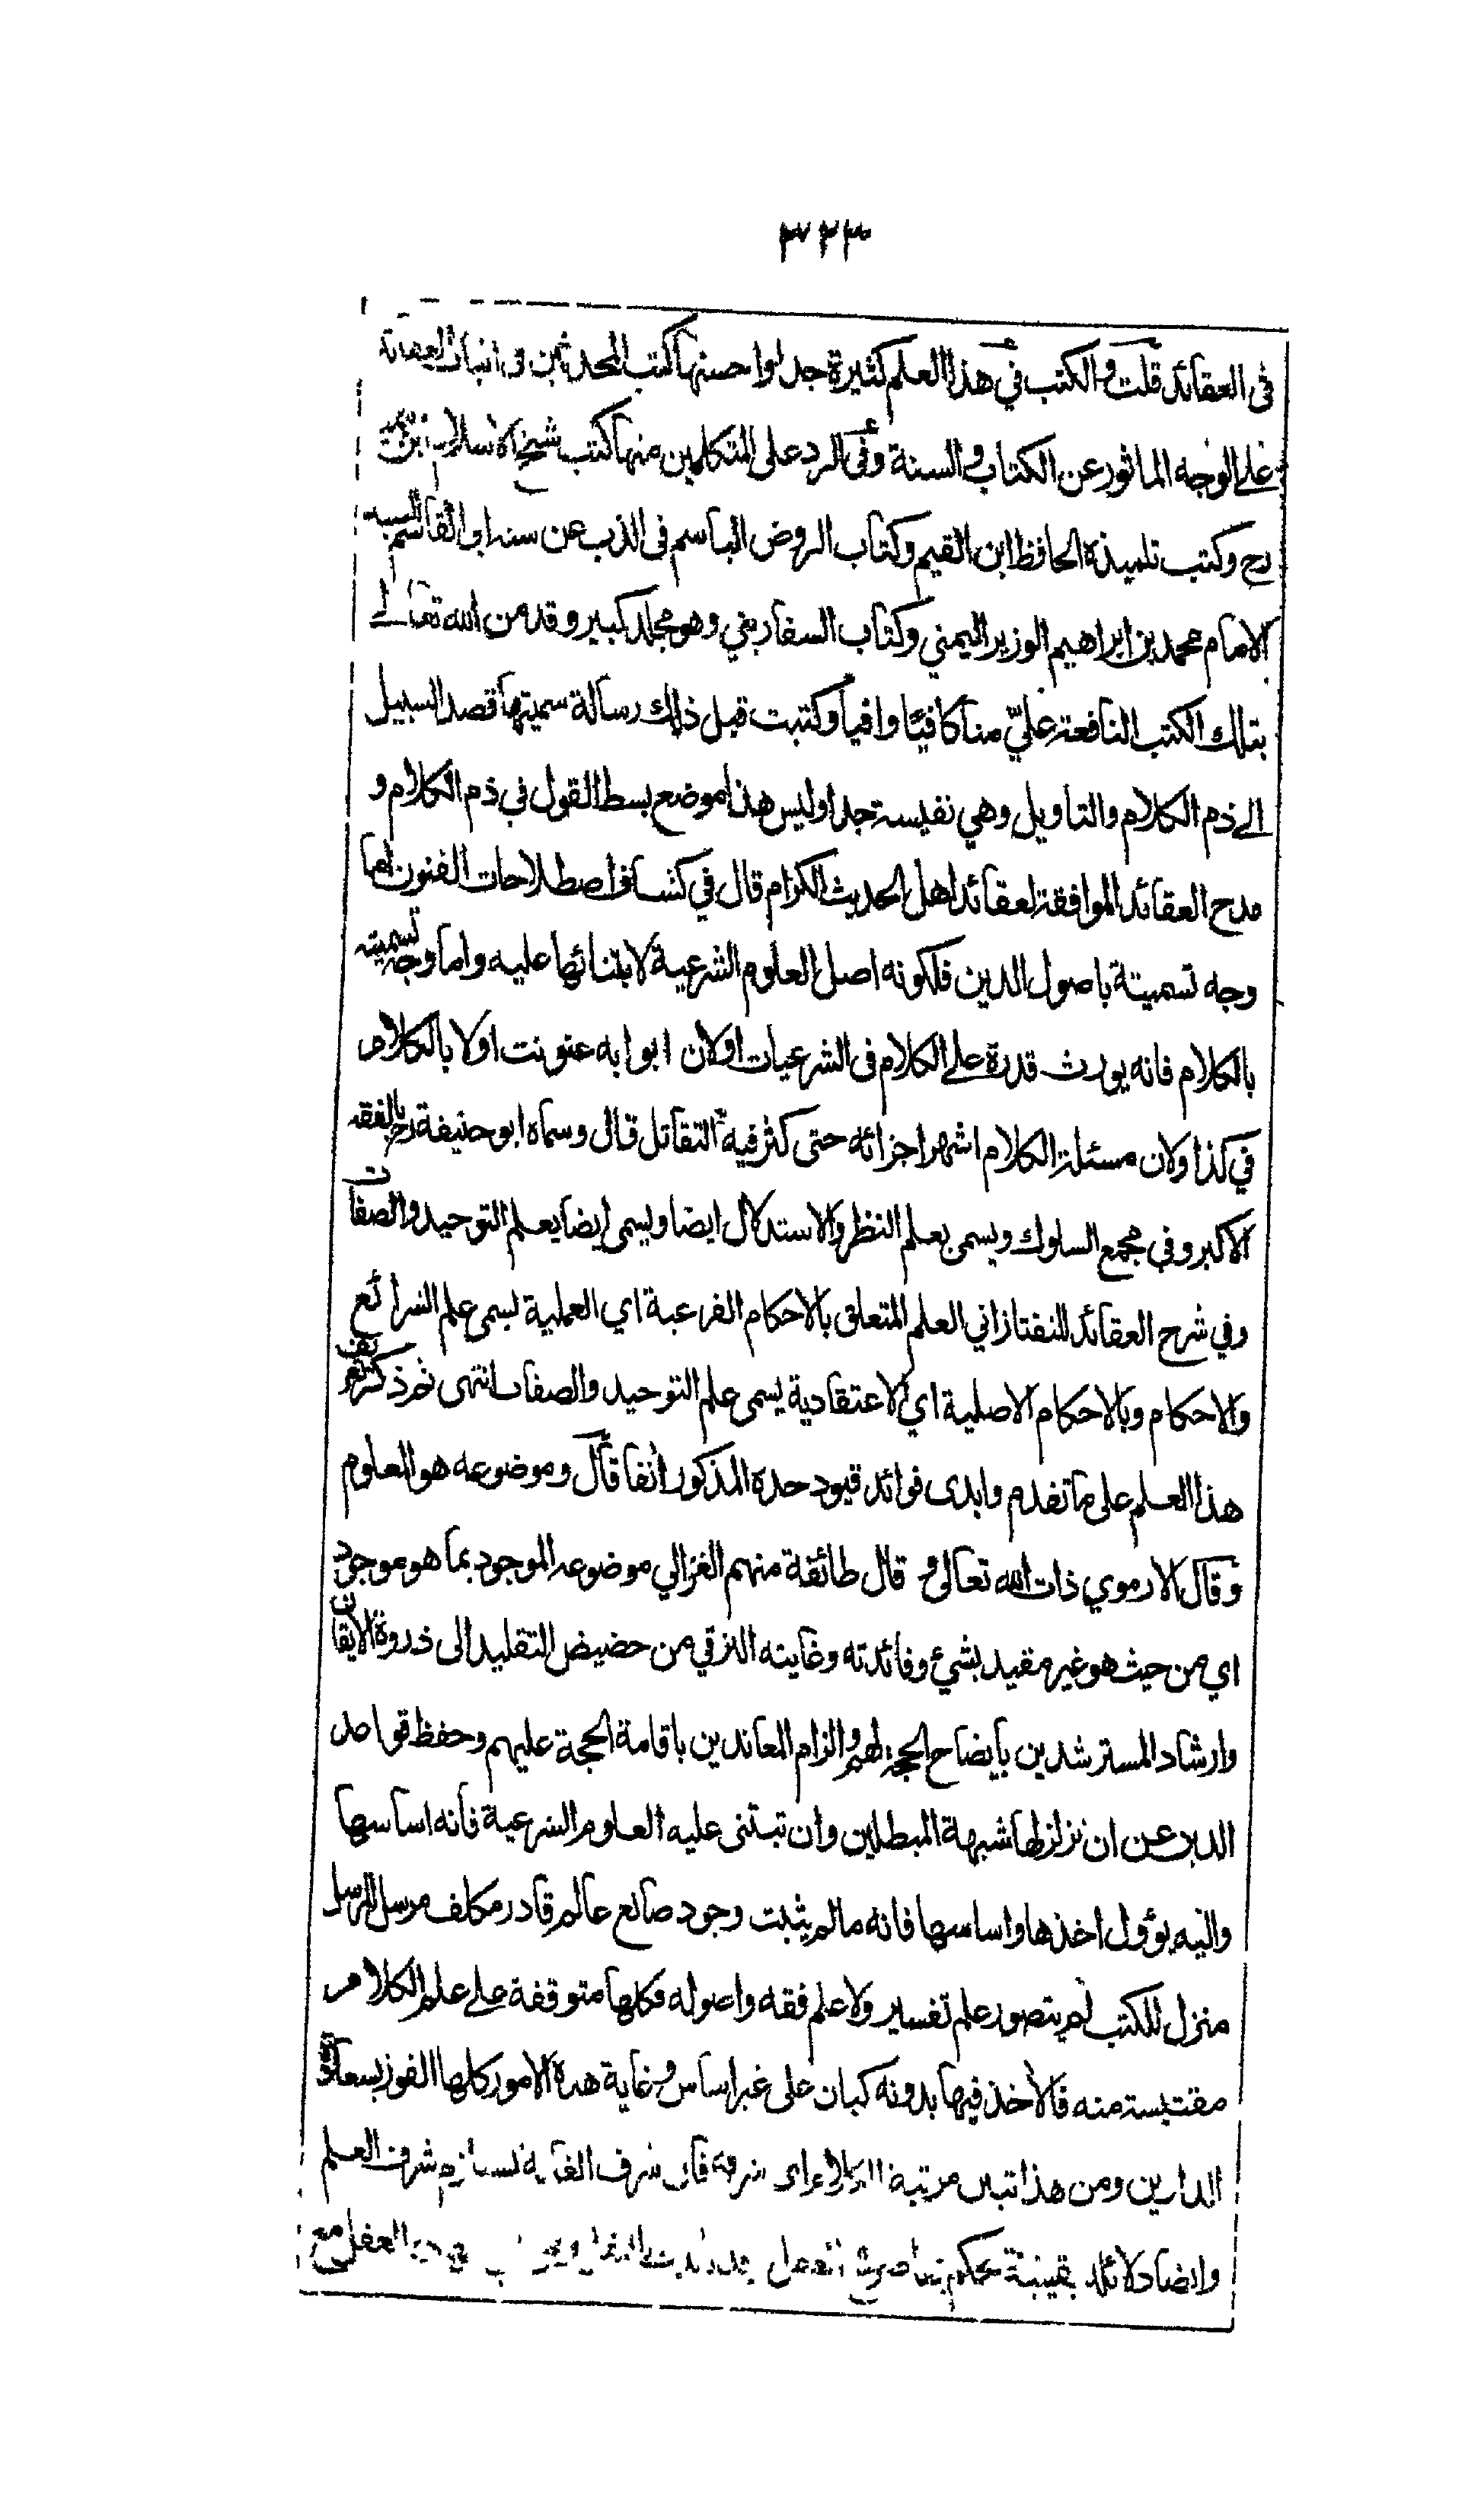 ٣٢٣
في العقائد قلت والكتب في هذا العلم كثيرة جدا واحسنها كتب المحدثين في اثبات العقائد
على الوجه الماثور عن الكتاب والسنة وفي الرد على المتكلمين منها كتب شيخ الاسلام ابن تيمية
رح وكتب تلميذه الحافظ ابن القيم وكتاب الروض الباسم في الذب عن سنة ابي القاسم للسيد
الامام محمد بن ابراهيم الوزير اليمني وكتاب السفاريني وهو مجلد كبير وقد من الله تعالى
بتلك الكتب النافعة عليّ منا كافيا وافيا وكتبت قبل ذلك رسالة سميتها قصد السبيل
الى ذم الكلام والتاويل وهي نفيسة جدا وليس هذا موضع بسط القول في ذم الكلام و
مدح العقائد الموافقة لعقائد اهل الحديث الكرام قال في كشاف اصطلاحات الفنون اما
وجه تسميتة باصول الدين فلكونه اصل العلوم الشرعية لابتنائها عليه واما وجه تسميته
بالكلام فانه يورث قدرة على الكلام في الشرعيات اولان ابوابه عنونت اولا بالكلام
في كذا ولان مسئلة الكلام اشهر اجزائه حتى كثر فيه التقاتل قال وسماه ابو حنيفة رح بالفقه
الاكبر وفي مجمع السلوك ويسمى بعلم النظر والاستدلال ايضا ويسمى ايضا بعلم التوحيد والصفات
وفي شرح العقائد للتفتازاني العلم المتعلق بالاحكام الفرعية اي العملية يسمى علم الشرائع
والاحكام وبالاحكام الاصلية اي الاعتقادية يسمى علم التوحيد والصفات انتهى ثم ذكر تعريف
هذا العلم على ما تقدم وابدى فوائد قيود حده المذكور انفا قال وموضوعه هو العلوم
وقال الارموي ذات الله تعالى و قال طائفة منهم الغزالي موضوعه الموجود بما هو موجود
اي من حيث هو غير مقيد بشيء وفائدته وغايته الترقي من حضيض التقليد الى ذروة الايقان
وارشاد المسترشدين بايضاح الحجة لهم والزام المعاندين باقامة الحجة عليهم وحفظ قواعد
الدين عن ان تزلزلها شبهة المبطلين وان تبتنى عليه العلوم الشرعية فانه اساسها
واليه يؤول اخذها واساسها فانه ما لم يثبت وجود صانع عالم قادر مكلف مرسل للرسل
منزل للكتب لم يتصور علم تفسير ولا علم فقه واصوله فكلها متوقفة على علم الكلام
مقتبسة منه فالاخذ فيها بدونه كبان على غير اساس وغاية هذه الامور كلها الفوز بسعادة
الدارين ومن هذا تبين مرتبة الكلام اي شرفه فان شرف الغاية يستلزم شرف العلم
وايضا دلائله يقينية يحكم بها صريح العقل العقل مع